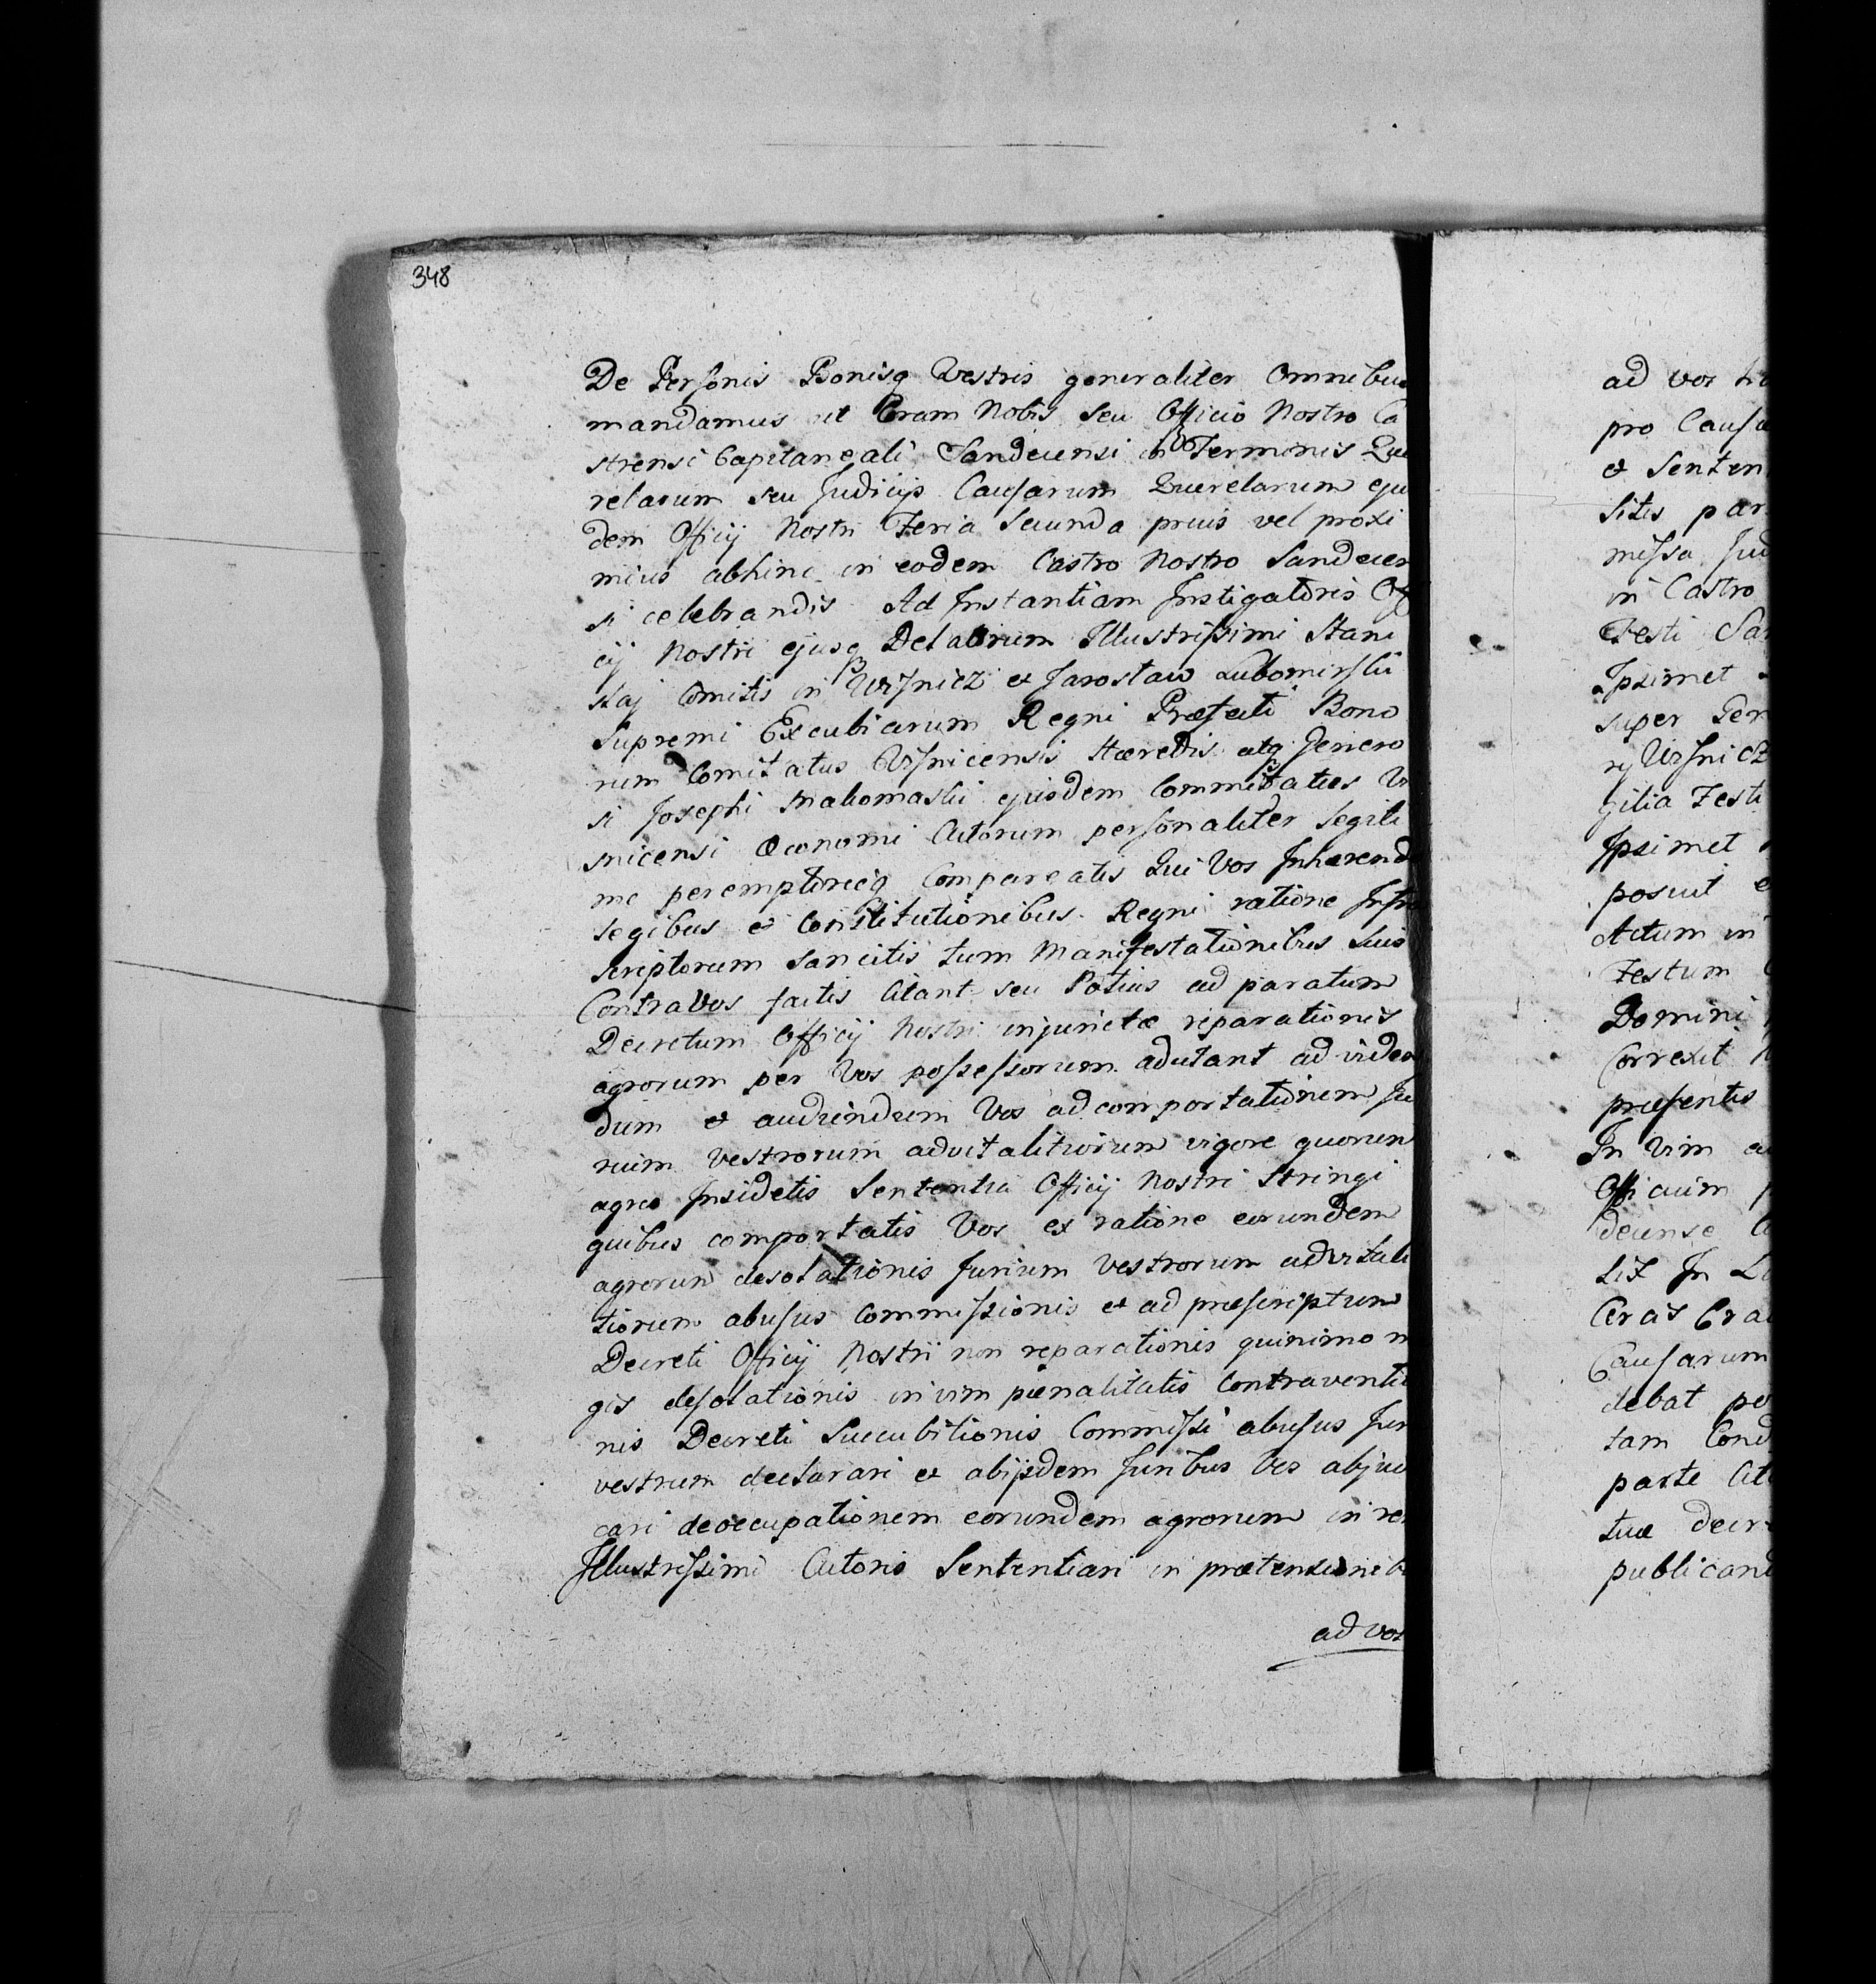 348
De Personis Bonisq Vestris generaliter Omnibus
mandamus ut Coram Nobis seu Officio Nostro Ca
strensi Capitaneali Sandecensi in Terminis Que
relarum seu Judicijs Causarum Querelarum eju
dem Officij Nostri Feria Secunda prius vel proxi
mius abhinc in eodem Castro Nostro Sandecen
si celebrandis Ad Instantiam Instigatoris Off
cij Nostri ejusq Delatorum Illustrissimi Stani
slaj Comitis in Wisnicz et Jaroslaw Lubomirski
Supremi Excubiarum Regni Præfecti Bono
rum Comitatus Wisnicensis Hæredis atq Genero
si Josephi Makomaski ejusdem Commitatus Wi
snicensi Œconomi Actorum personaliter Legiti
me peremptorieq Compareatis Qui Vos Inhærend
Legibus et Constitutionibus Regni ratione Infra
scriptorum sancitis tum Manifestationibus Suis
Contra Vos factis Citant seu Potius ad paratum
Decretum Officij Nostri injunctæ reparationis
agrorum per Vos possessorum adcitant ad viden
dum et audiendum Vos ad comportationem Ju
rium Vestrorum advitalitiorum vigore quorum
agros Insidetis Sententia Officij Nostri Stringi
quibus comportatis Vos ex ratione eorundem
agrorum desolationis Jurium Vestrorum advitali
tiorum abusus Commissionis et ad præscriptum
Decreti Officij Nostri non reparationis quinimo m
gis desolationis in vim pœnalitatis Contraventio
nis Decreti Succubitionis Commissi abusus Jur
vestrum declarari et abijsdem Juribus Vos abjud
cari deoccupationem eorundem agrorum in rem
Illustrissimi Actoris Sententiari in prætensionib
ad vos
ad vos
pro Causa
et Senten
sitis par
missa Jud
in Castro
Festi San
Ipsimet
super Per
rij Wisnicz
gilia Festi
Ipsimet
posuit e
Actum in
Festum
Domini
Correxit
præsentis
In Vim
Officium
decense
tit In
Causarum
debat pe
tam Cond
parte
tuæ decre
publicand